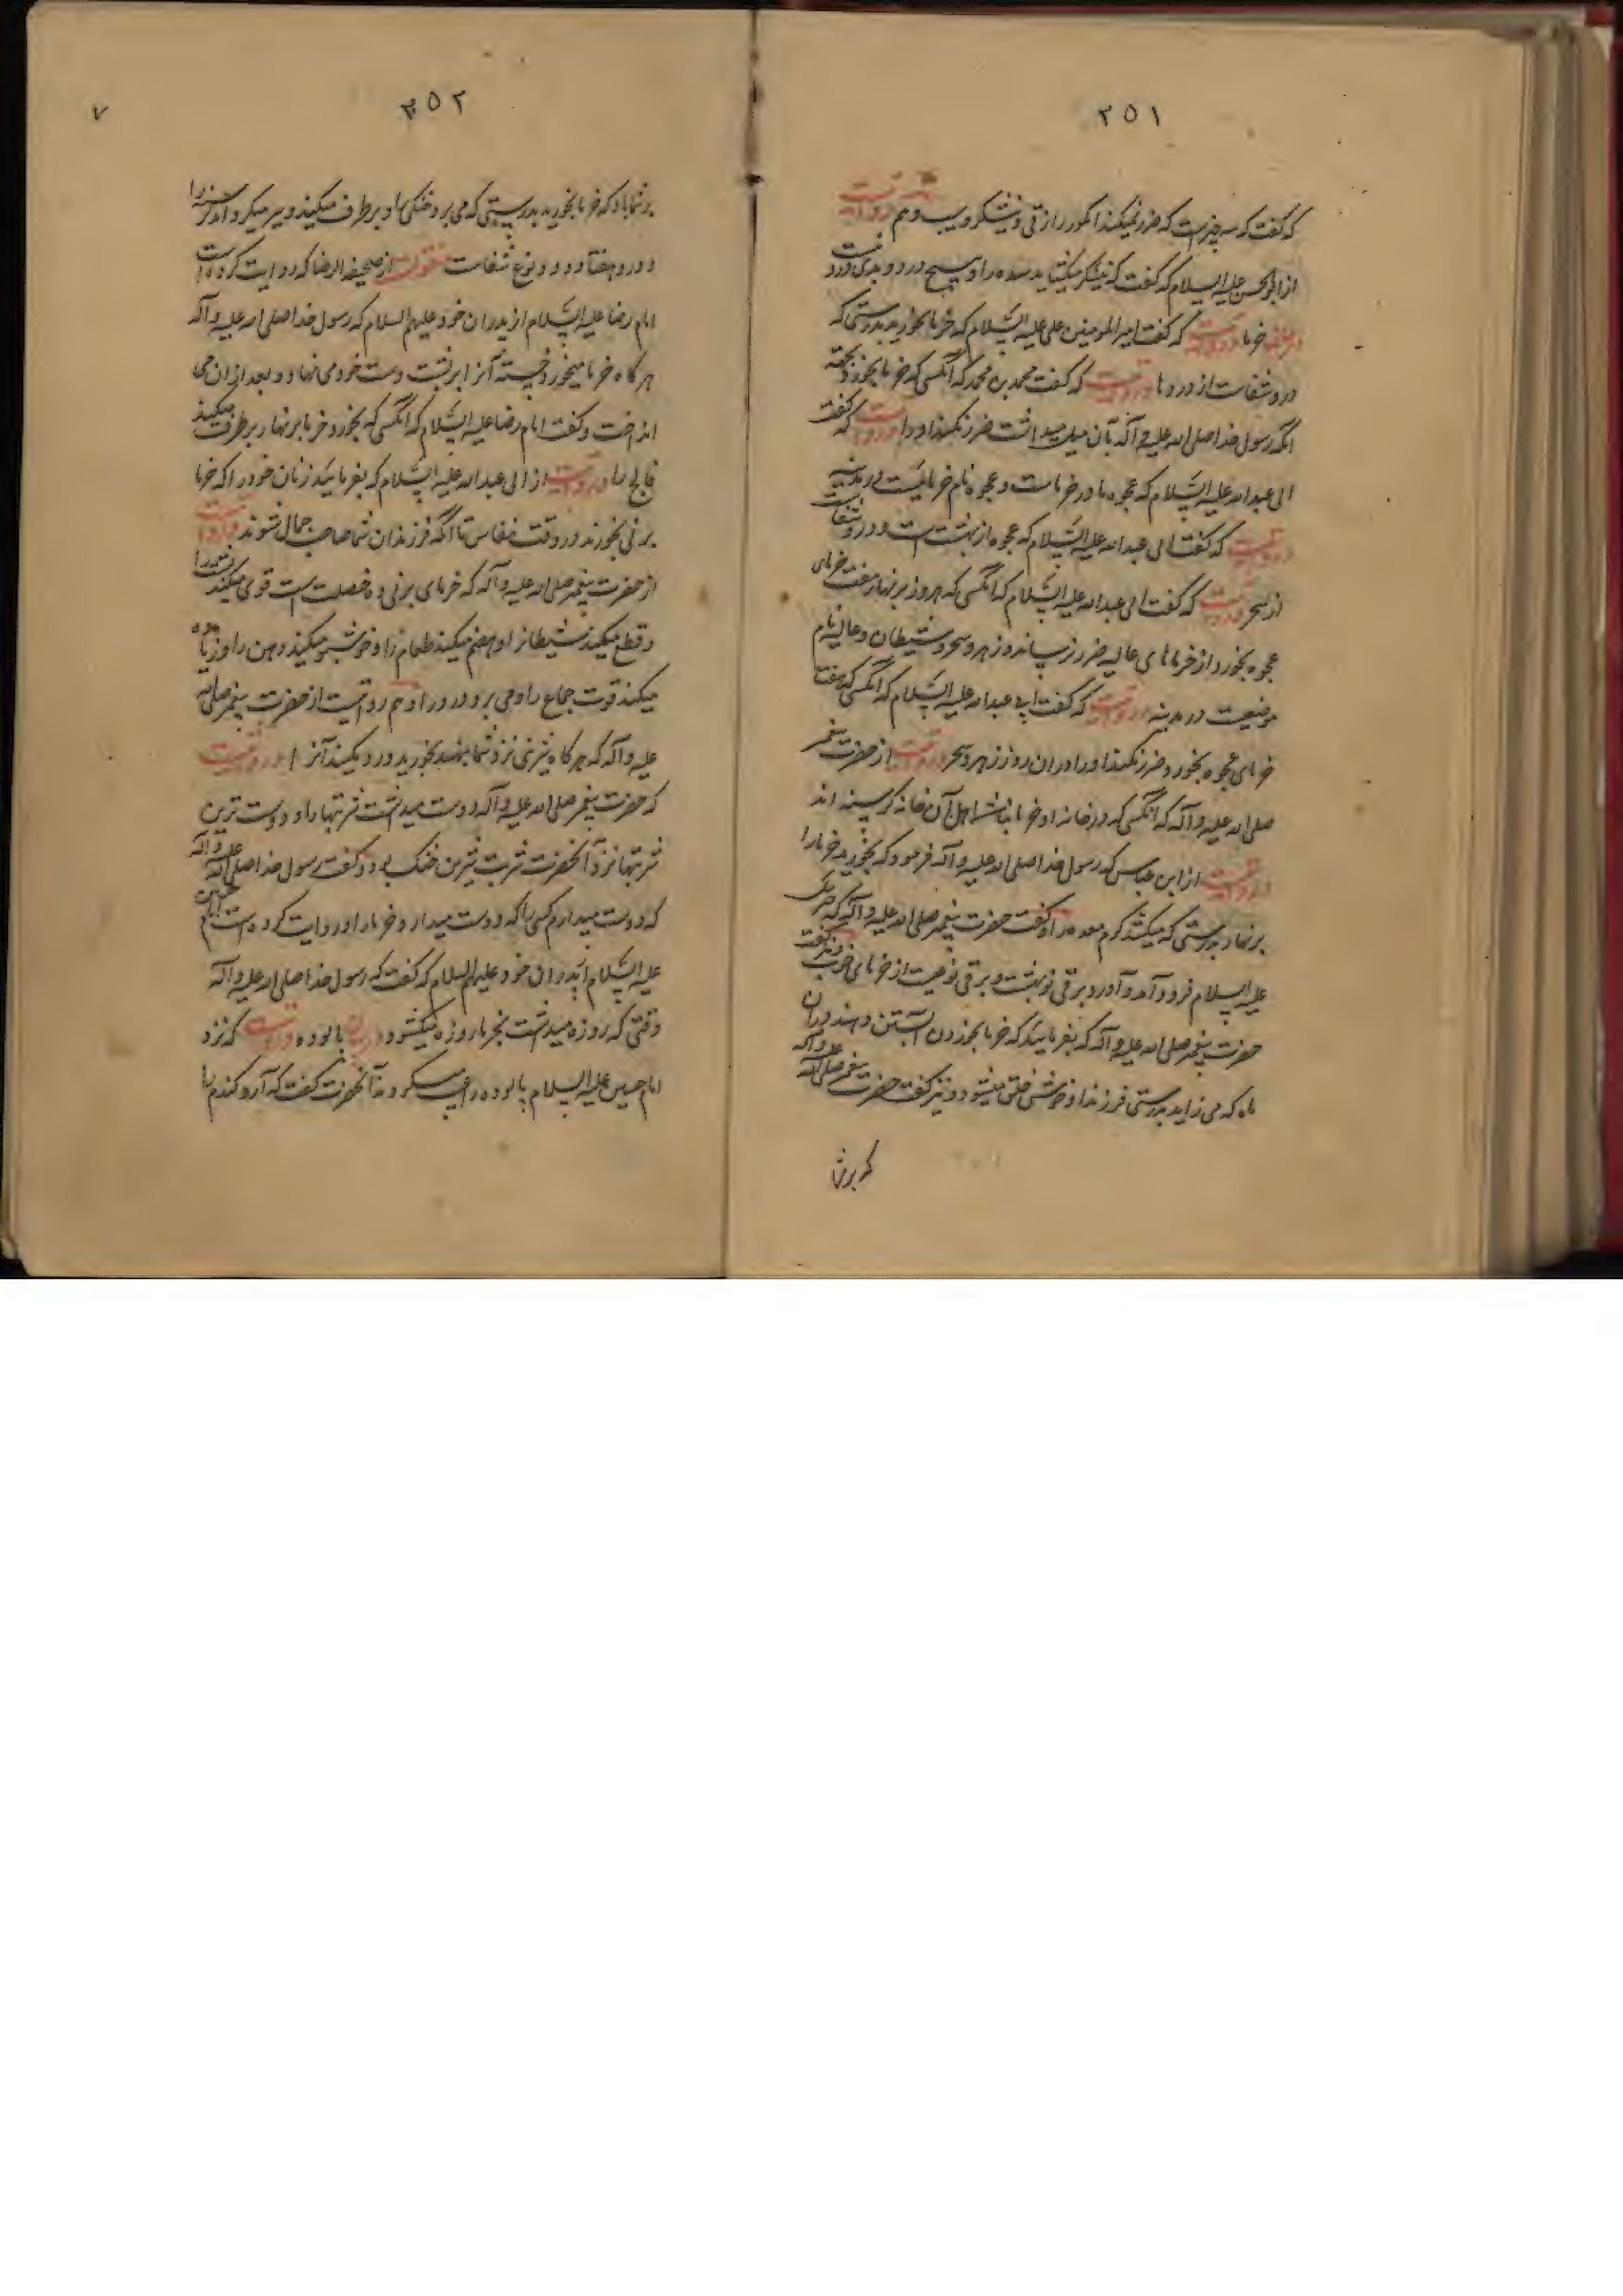 ۲۵۱
که گفت که سه چیز است که ضرر نمیکند انکور رازقی و نیشکر و سیب و هم روایت
از ابوالحسن علیه السلام که گفت که نیشکر میکشاید سده را و هیچ درد و بدی درو نیست
در منفعت خرما روایت که گفت امیرالمومنین علی علیه السلام که خرما بخورید بدرستی که
درو شفاست از دردها روایت که گفت محمد بن محمد که انکسی که خرما بخورد
انکه رسول خدا صلی الله علیه و آله بآن میل میداشت ضرر نکند او را روایت که گفت
ابی عبدالله علیه السلام که عجوه مادر خرماست و عجوه نام خرمائیست در مدینه
روایت که گفت ابی عبدالله علیه السلام که عجوه از بهشت است و درو شفاست
از سحر روایت که گفت ابی عبدالله علیه السلام که انکسی که هر روز بر نهار هفت خرمای
عجوه بخورد از خرماهای عالیه ضرر نرساند و زهر و سحر و شیطان و عالیه نام
موضعیت در مدینه روایت که گفت ابی عبدالله علیه السلام که انکسی که هفتا
خرمای عجوه بخورد ضرر نکند او را دران روز زهر و سحر روایت از حضرت پیغمبر
صلی الله علیه و آله که انکسی که در خانه او خرما نباشد اهل آن خانه کرسنه اند
روایت از ابن عباس که رسول خدا صلی الله علیه و آله فرمود که بخورید خرما را
بر نهار بدرستی که میکشد کرم معده را و گفت حضرت پیغمبر صلی الله علیه و آله که جبرئیل
علیه السلام فرود آمد و آورد برنی از بهشت و برنی نوعیست از خرمای خوب و نیز گفت
حضرت پیغمبر صلی الله علیه و آله که بفرمائید که خرما بخوردن آبستن دهند دران
ماه که می زاید بدرستی فرزند او خوش خلق میشود و نیز گفت حضرت پیغمبر صلی الله علیه و آله
که برشما
۲۵۲
برشما باد که خرما بخورید بدرستی که می برد خشکی او برطرف میکند و سیر میکرد اند کرسنه را
و درو هفتاد و دو نوع شفاست منقولست از صحیفه الرضا که روایت کرده است
امام رضا علیه السلام از پدران خود علیهم السلام که رسول خدا صلی الله علیه و آله
هر کاه خرما میخورد خسته آنرا بر پشت دست خود می نهاد و بعد ازان می
انداخت و گفت امام رضا علیه السلام که انکسی که بخورد خرما بر نهار برطرف میکند
فالج را روایت از ابی عبدالله علیه السلام که بفرمائید زنان خود را که خرما
برنی بخورند در وقت نفاس تا انکه فرزندان شما صاحب جمال شوند روایت
از حضرت پیغمبر صلی الله علیه و آله که خرمای برنی ده خصلت است قوی میکند پشت را
و قطع میکند شیطانرا و هضم میکند طعام را و خوشبو میکند دهن را و زیاده
میکند قوت جماع را و می برد درد را و هم روایت از حضرت پیغمبر صلی الله
علیه و آله که هر کاه شیرینی نزد شما بنهند بخورید و رد نکنید آنرا و روایت
که حضرت پیغمبر صلی الله علیه و آله دوست میداشت شربتها را و دوست ترین
شربتها نزد آنحضرت شربت شیرین خنک بود و گفت رسول خدا صلی الله علیه و آله
که دوست میدارم کسی را که دوست میدارد خرما را و روایت کرده است امام حسین
علیه السلام از پدران خود علیهم السلام که گفت که رسول خدا صلی الله علیه و آله
وقتی که روزه میداشت بخرما روزه میکشود در بیان پالوده روایت که نزد
امام حسین علیه السلام پالوده را عیب میکردند آنحضرت گفت که آرد کندم را